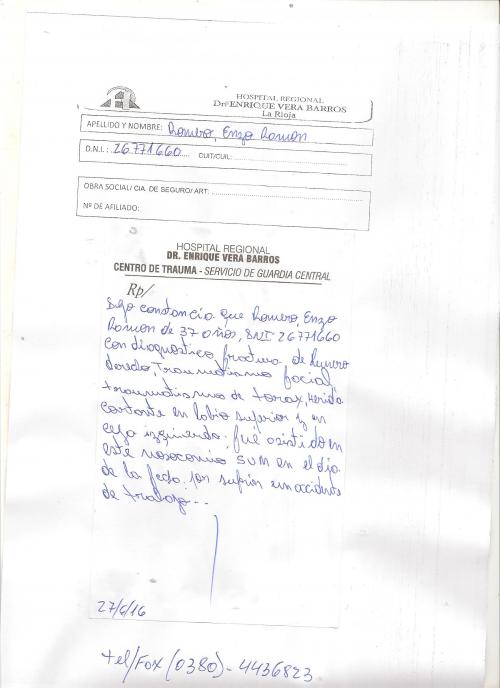 HOSPITAL REGIONAL
Dr. ENRIQUE VERA BARROS
La Rioja
APELLIDO Y NOMBRE: Romero, Enzo Ramon
D.N.I.: 26771660 CUIT/CUIL:
OBRA SOCIAL/ CIA. DE SEGURO/ ART:
Nº DE AFILIADO:
HOSPITAL REGIONAL
DR. ENRIQUE VERA BARROS
CENTRO DE TRAUMA - SERVICIO DE GUARDIA CENTRAL
Rp/
Dejo constancia que Romero, Enzo
Ramon de 37 años, DNI 26771660
con diagnostico fractura de
Traumatismo facial
traumatismo de torax, Herida
cortante en labio superior y en
ceja izquierda, fué asistido en
este nosocomio en el dia
de la fecha por sufrir un accidente
de trabajo...
27/6/16
tel/Fax (0380) - 4436823